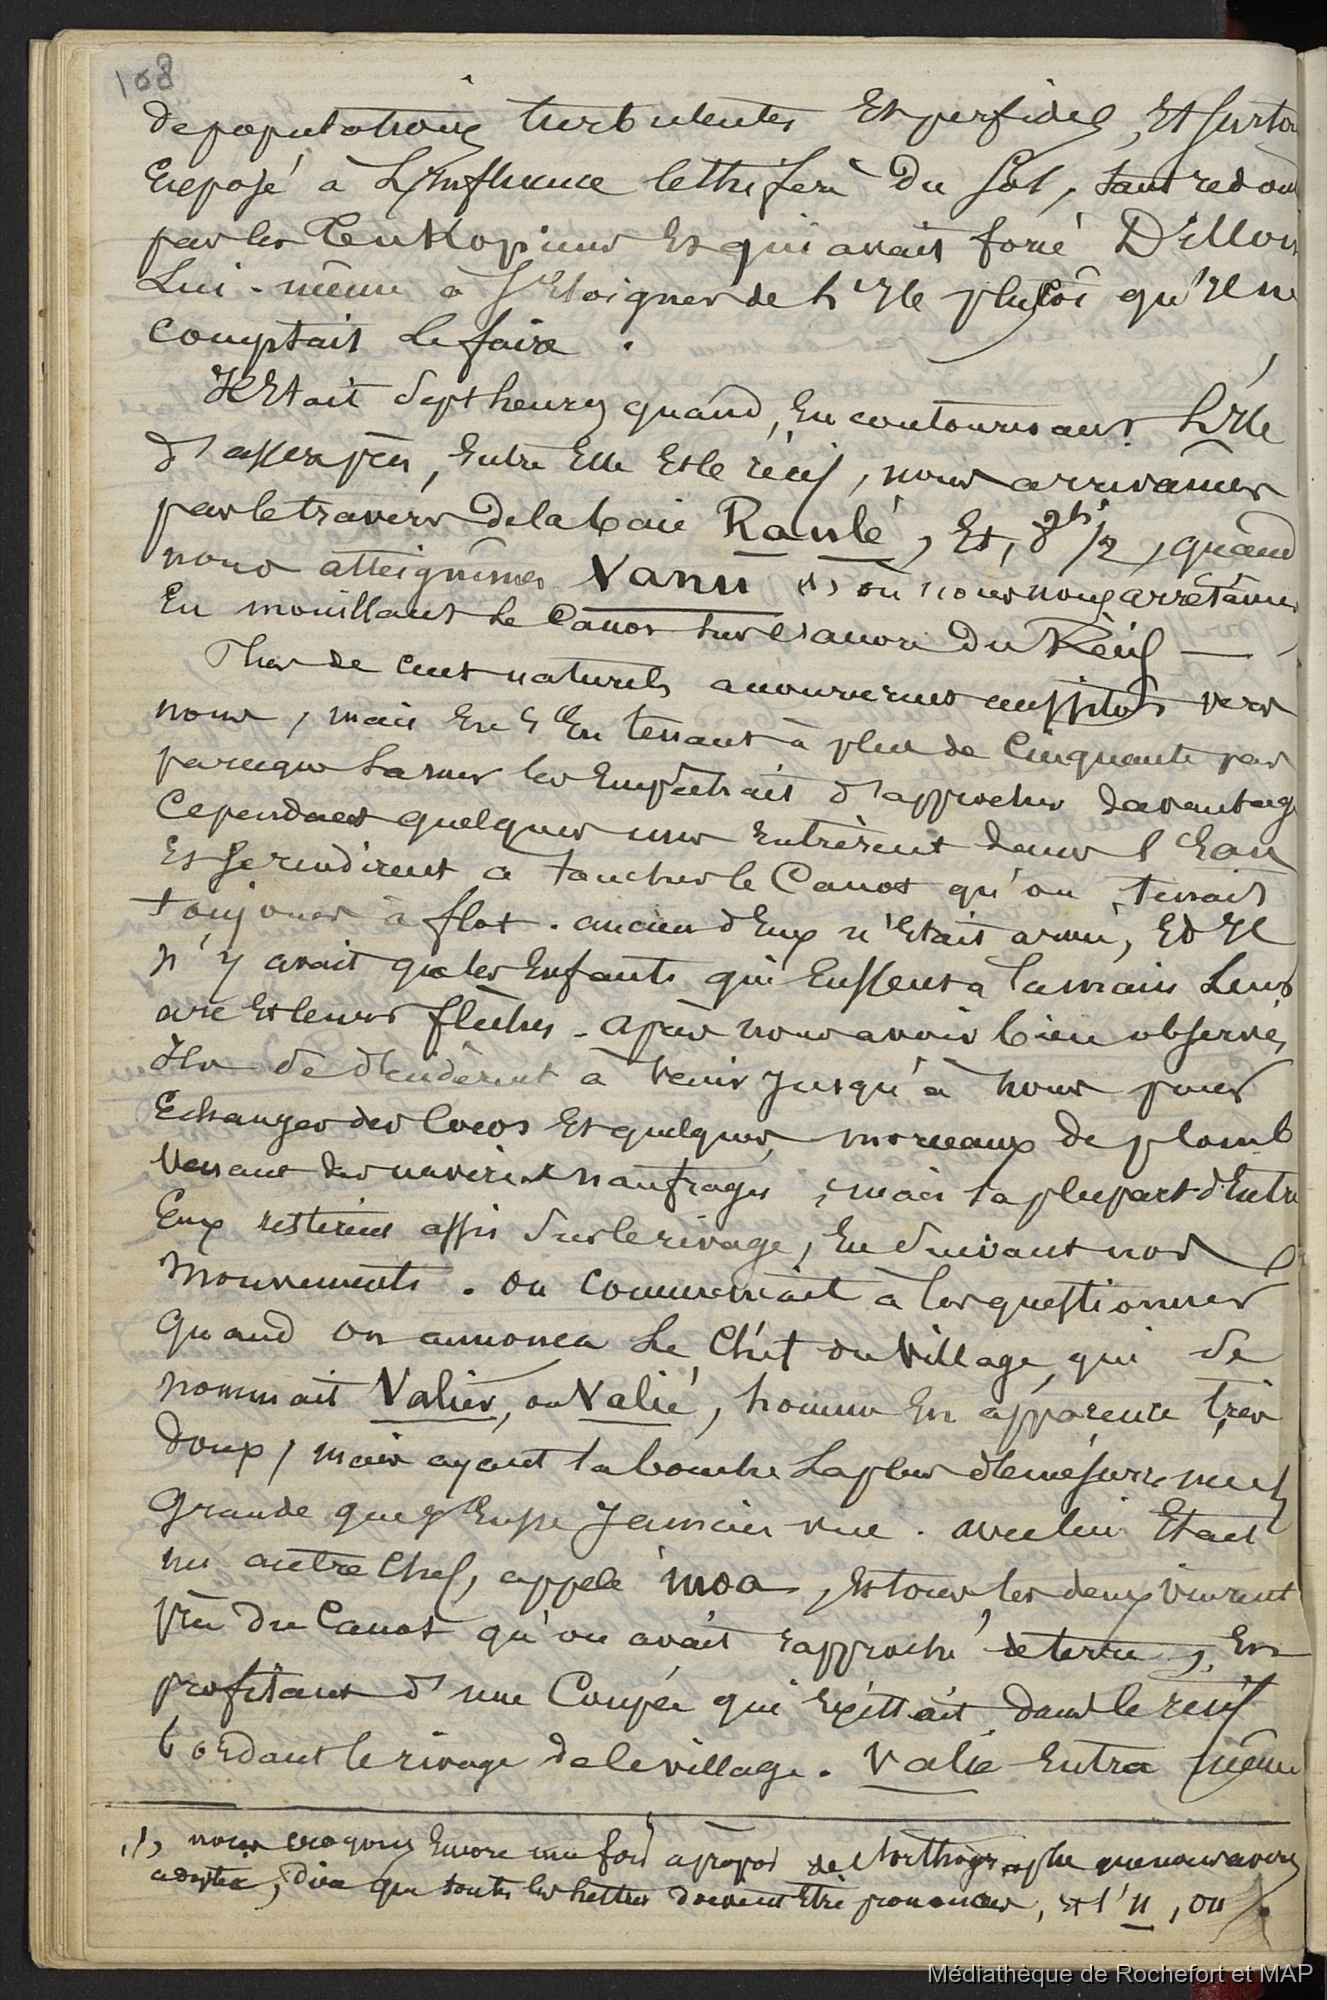 108
de populations turbulentes Et perfides, Et surtou
Exposé à L'Enfluence lethifere Du Sol, tant redou
par les Teukopiens Et qui avait forcé Dillon
Lui-même à s'Eloigner de L'Ile plutôt qu'Il ne
Comptait Le faire.
Il Etait Sept heures quand, En contournant L'Ile
d'assez près, Entre Elle Et le récif, nous arrivâmes
par le travers de la baie Ranlé, Et, 8h 1/2, quand
nous atteignîmes Vanu (1) où nous nous arrêtâmes
En mouillant Le Canot sur l'accore Du Récif —
Plus de cent naturels accoururent aussitôt vers
nous, mais En s'En tenant à plus de Cinquante pas
parceque La mer les Empêchait d'approcher davantage
Cependant quelques uns Entrèrent dans l'Eau
Et Se rendirent a toucher le Canot qu'on tenait
toujours à flot. aucun d'Eux n'Etait armé, Et Il
n'y avait que les Enfants qui Eussent à la main Leur
arc Et leurs flèches - après nous avoir bien observés,
Ils se décidèrent à venir jusqu'à nous pour
Echanger des Cocos Et quelques morceaux de plomb
Venant des navires naufragés, mais la plupart d'Entre
Eux restèrent assis Sur le rivage, En Suivant nos
Mouvements. on commencait à les questionner
Quand on annonca Le Chef du Village, qui se
nommait Valiev, ou Valié, homme En apparence très
doux, mais ayant la bouche La plus démesurément
Grande que j'Eusse jamais vue. avec lui Etait
un autre Chef, appelé moa, Et tous les deux vinrent
près du Canot qu'on avait rapproché de terre, En
profitant d'une Coupée qui Existait dans le récif
bordant le rivage de le village. Valié Entra même
(1) nous croyons Encore une fois apropos de l'orthographe que nous avons
adoptée, Dire que toutes les Lettres doivent Etre prononcées, Et l'u, ou
Médiathèque de Rochefort et MAP